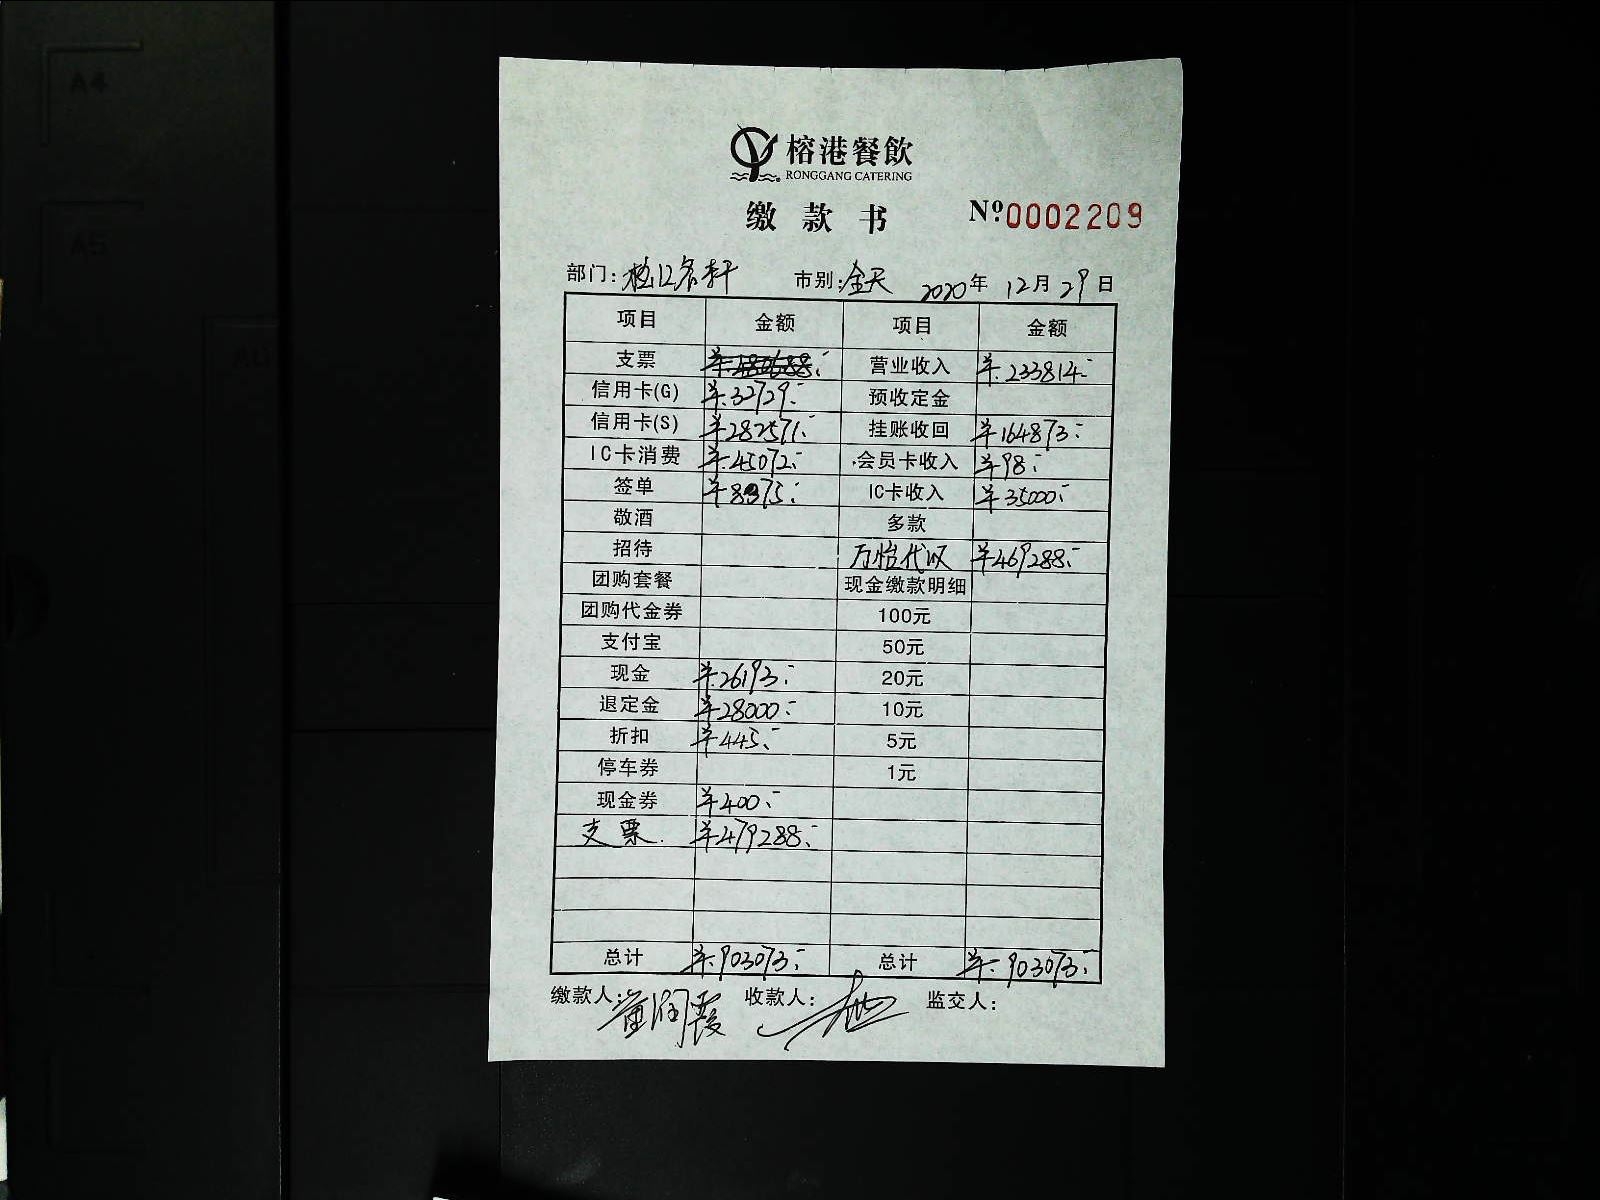 A4
A5
榕港餐飲
RONGGANG CATERING
缴款书 Nº 0002209
部门: 市别: 全天 2020年 12月 29日
项目 金额 项目 金额
支票 营业收入 ¥.233814.-
信用卡(G) ¥.32729.- 预收定金
信用卡(S) ¥282571.- 挂账收回 ¥164873.-
IC卡消费 ¥.45072.- 会员卡收入 ¥98.-
签单 ¥8375.- IC卡收入 ¥35000.-
敬酒 多款
招待 万怡代收 ¥469288.-
团购套餐 现金缴款明细
团购代金券 100元
支付宝 50元
现金 ¥.26193.- 20元
退定金 ¥28000.- 10元
折扣 ¥445.- 5元
停车券 1元
现金券 ¥400.-
支票. ¥479288.-
总计 ¥.903073.- 总计 ¥.903073.-
缴款人: 董润霞 收款人: 监交人: